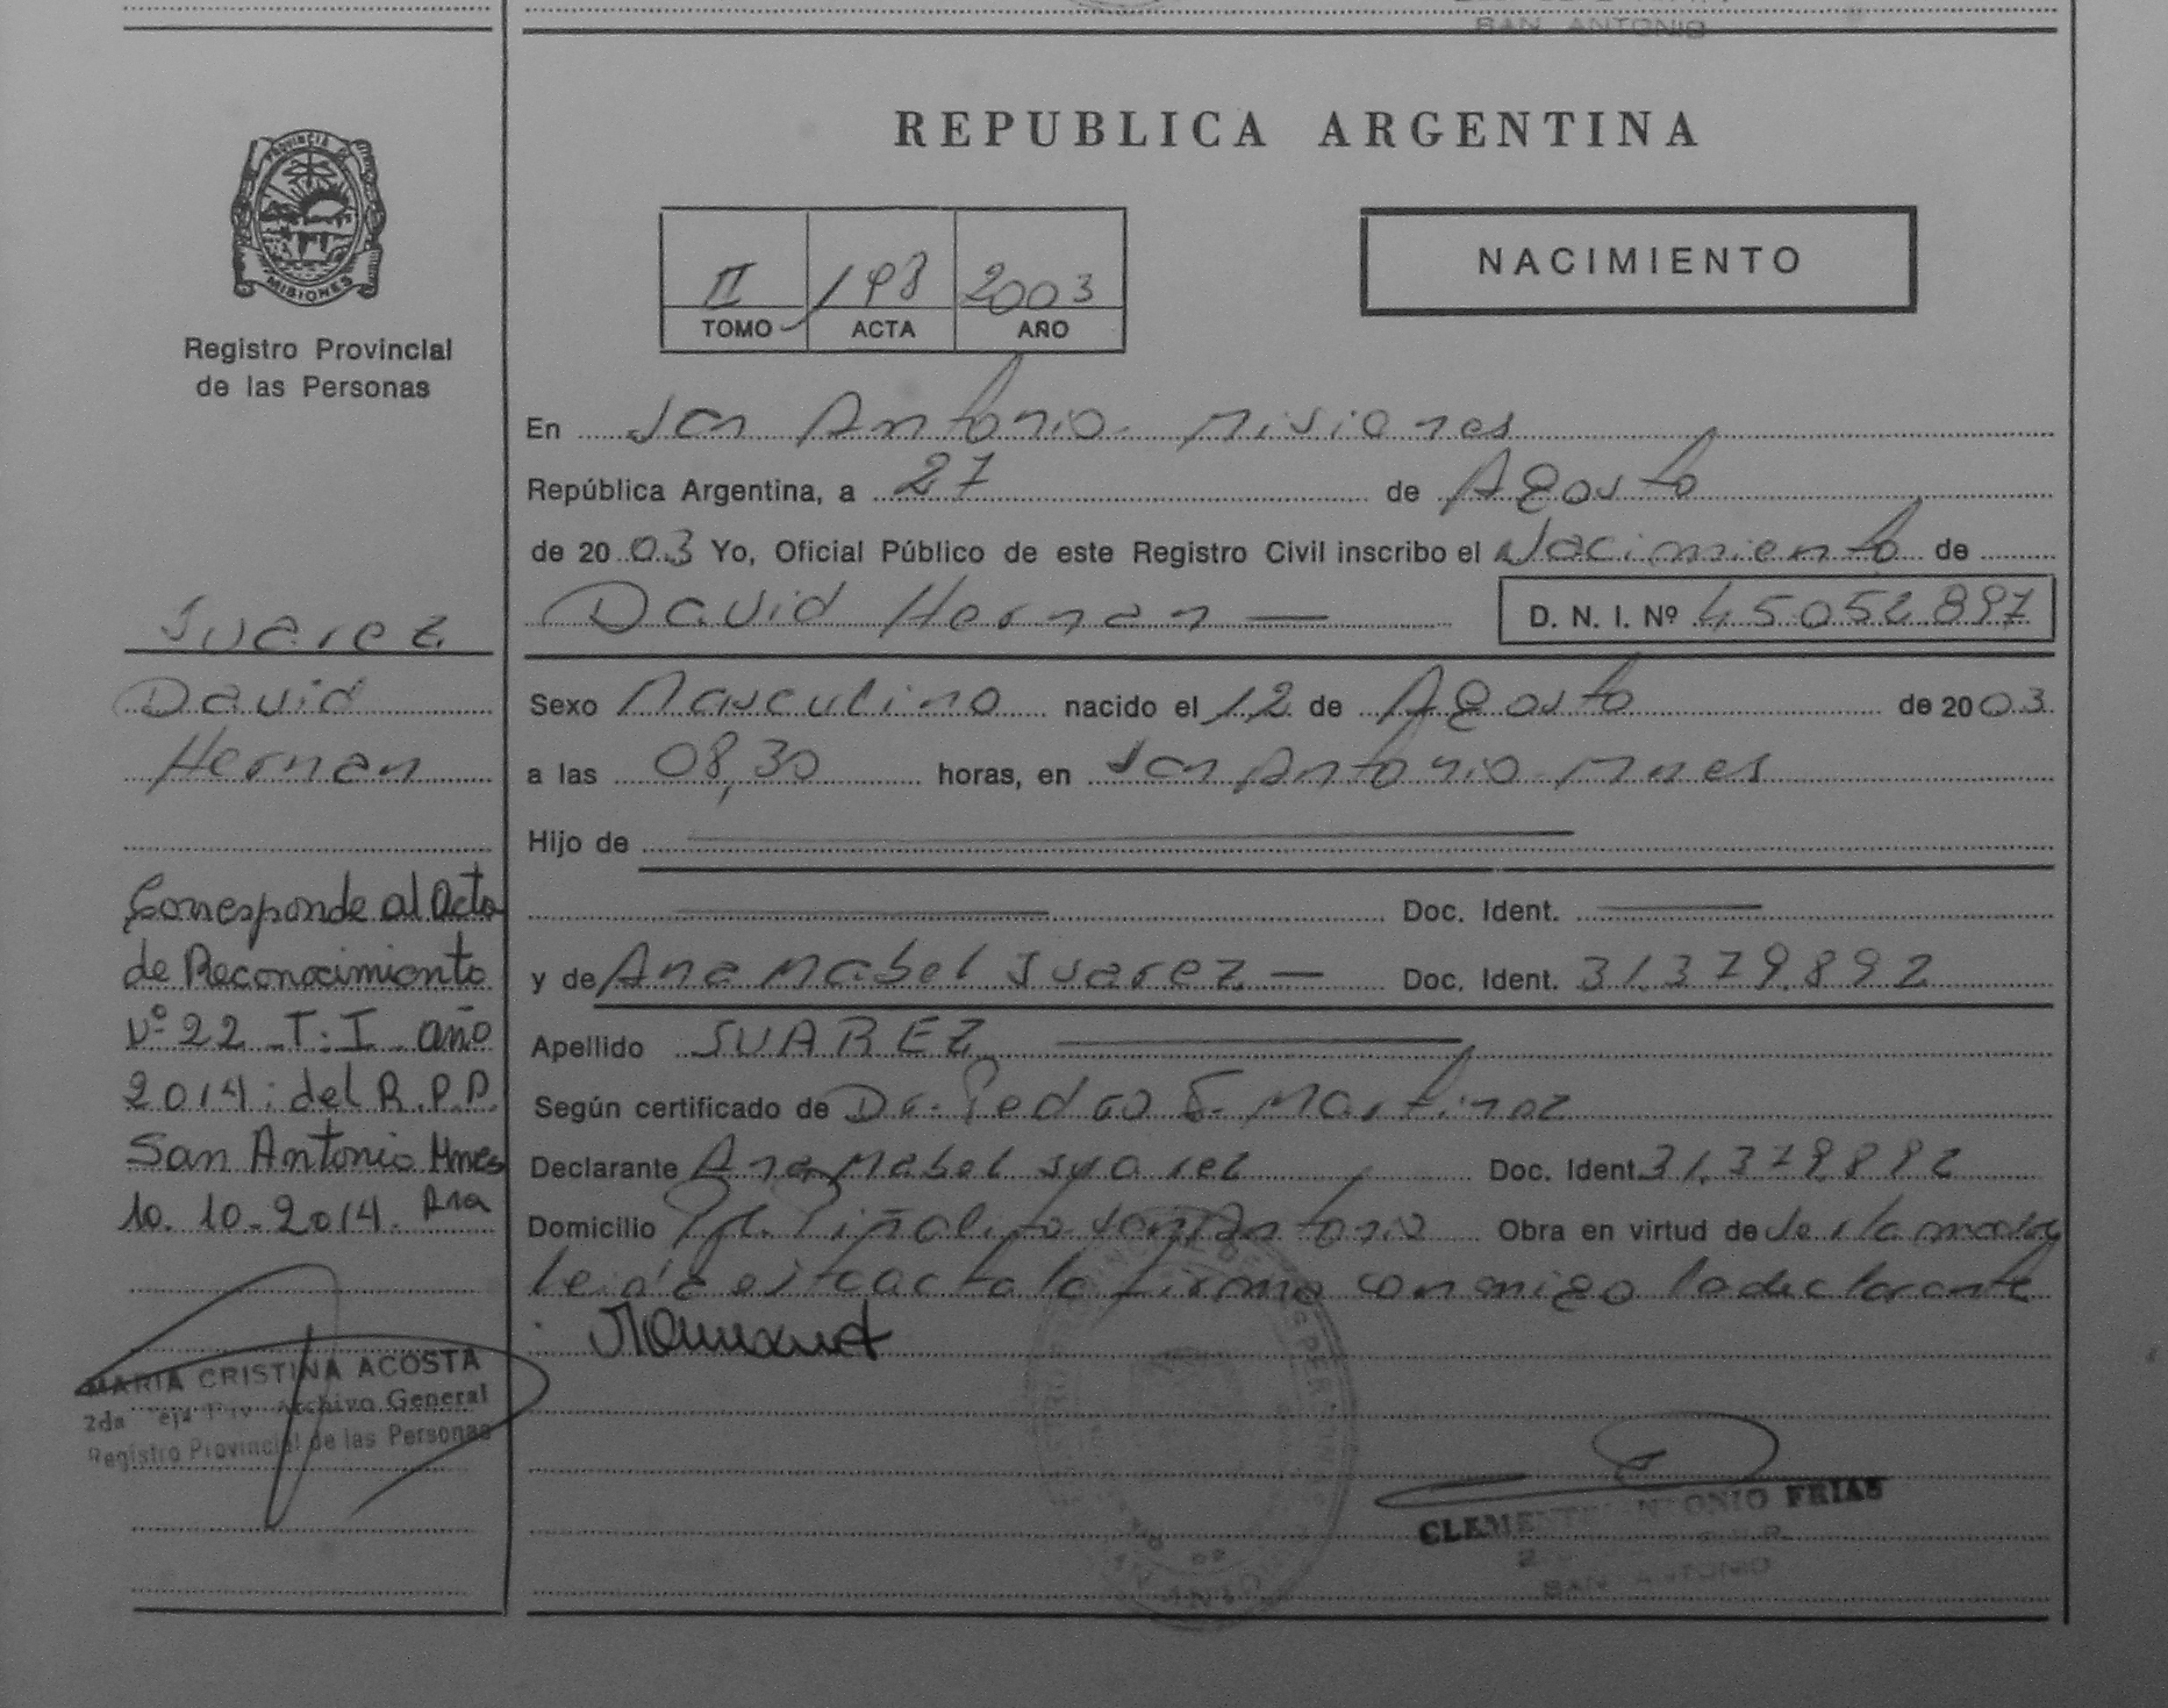 SAN ANTONIO
PROVINCIA DE
MISIONES
Registro Provincial
de las Personas
REPUBLICA ARGENTINA
NACIMIENTO
II 198 2003
TOMO ACTA AÑO
En San Antonio - Misiones
República Argentina, a 27 de Agosto
de 2003 Yo, Oficial Público de este Registro Civil inscribo el Nacimiento de
David Hernan — D. N. I. Nº 45052.897
Sexo Masculino nacido el 12 de Agosto de 2003
a las 08,30 horas, en San Antonio - Mnes
Hijo de
Doc. Ident.
y de Ana Mabel Suarez — Doc. Ident. 31.379.892
Apellido SUAREZ
Según certificado de Dr. Pedro E. Martinez
Declarante Ana Mabel Suarez Doc. Ident. 31.379.892
Domicilio Piñalito San Antonio Obra en virtud de ser la madre
Leida esta acta la firma conmigo la declarante
Suarez
David
Hernan
Corresponde al Acta
de Reconocimiento
Nº 22 - T: I - año
2014: del R.P.P.
San Antonio Mnes
10. 10 - 2014.
MARIA CRISTINA ACOSTA
2da Archivo General
Registro Provincial de las Personas
CLEMENTE ANTONIO FRIAS
SAN ANTONIO